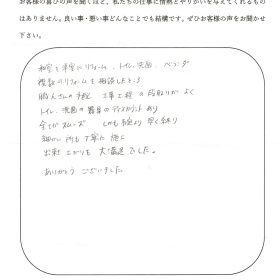 お客様の喜びの声を聞くほど、私たちの仕事に情熱とやりがいを与えてくれるもの
はありません。良い事・悪い事どんなことでも結構です。ぜひお客様の声をお聞かせ
下さい。
和室を洋室にリフォーム、トイレ、洗面、ベランダ
複数のリフォームを相談したところ
職人さんの手配 工事工程の段取りがよく
トイレ、洗面の器具のディスカウントもあり
全てがスムーズ しかも予定より早く終り
細かい所も丁寧に施工
出来上がりも大満足でした。
ありがとうございました。